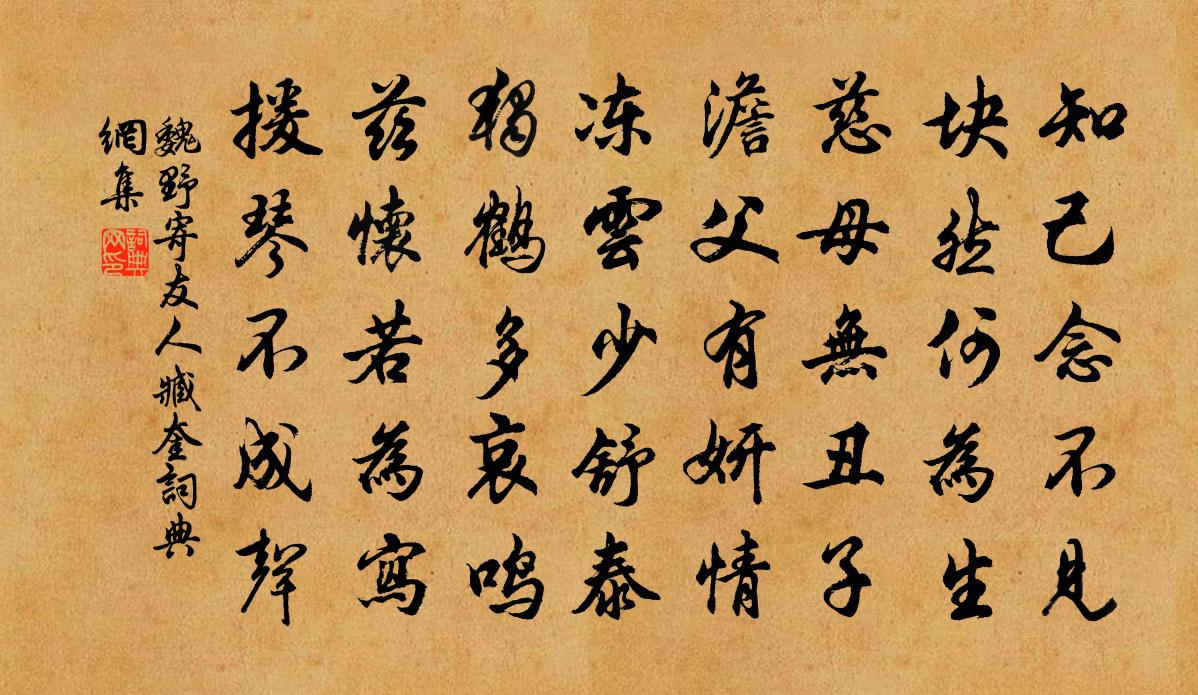 知己念不見
块然何為生
慈母無丑子
澹父有妍情
冻雲少舒泰
獨鶴多哀鸣
兹懷若為寫
援琴不成聲
魏野寄友人臧奎詞典
網集
詞典網印